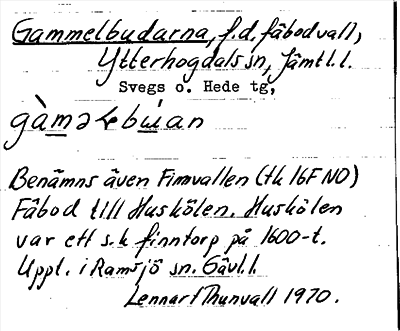 Gammelbudarna, f.d. fäbodvall,
Ytterhogdals sn, Jämtl.l.
Svegs o. Hede tg,
Benämns även Finnvallen (tk 16F NO)
Fäbod till Huskölen. Huskölen
var ett s.k finntorp på 1600-t.
Uppt. i Ramsjö sn. Gävl.l.
Lennart Thunvall 1970.